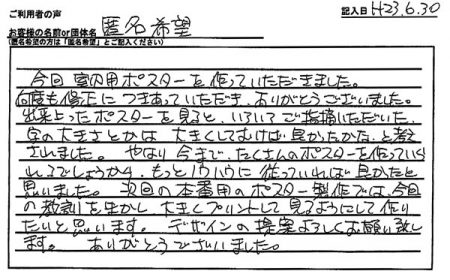 ご利用者の声
記入日 H23.6.30
お客様の名前or団体名 匿名希望
(匿名希望の方は「匿名希望」とご記入ください)
今回室内用ポスターを作っていただきました。
何度も修正につきあっていただき、ありがとうございました。
出来上ったポスターを見ると、いろいろご指摘いただいた、
字の大きさとかは大きくしておけば良かったかな、と考え
されました。やはり今まで、たくさんのポスターを作っていら
れるでしょうから、もっとノウハウに従っていれば良かったと
思いました。次回の本番用のポスター製作では、今回
の教訓を生かし、大きくプリントして見るようにして作り
たいと思います。デザインの提案よろしくお願い致し
ます。ありがとうございました。